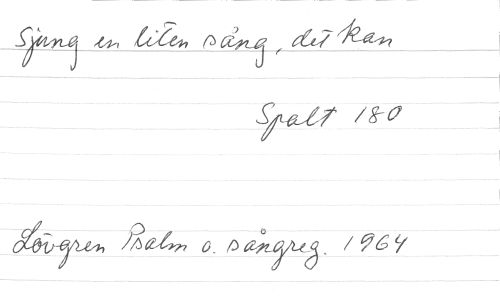 Sjung en liten sång, det kan
Spalt 180
Lövgren Psalm o. sångreg. 1964